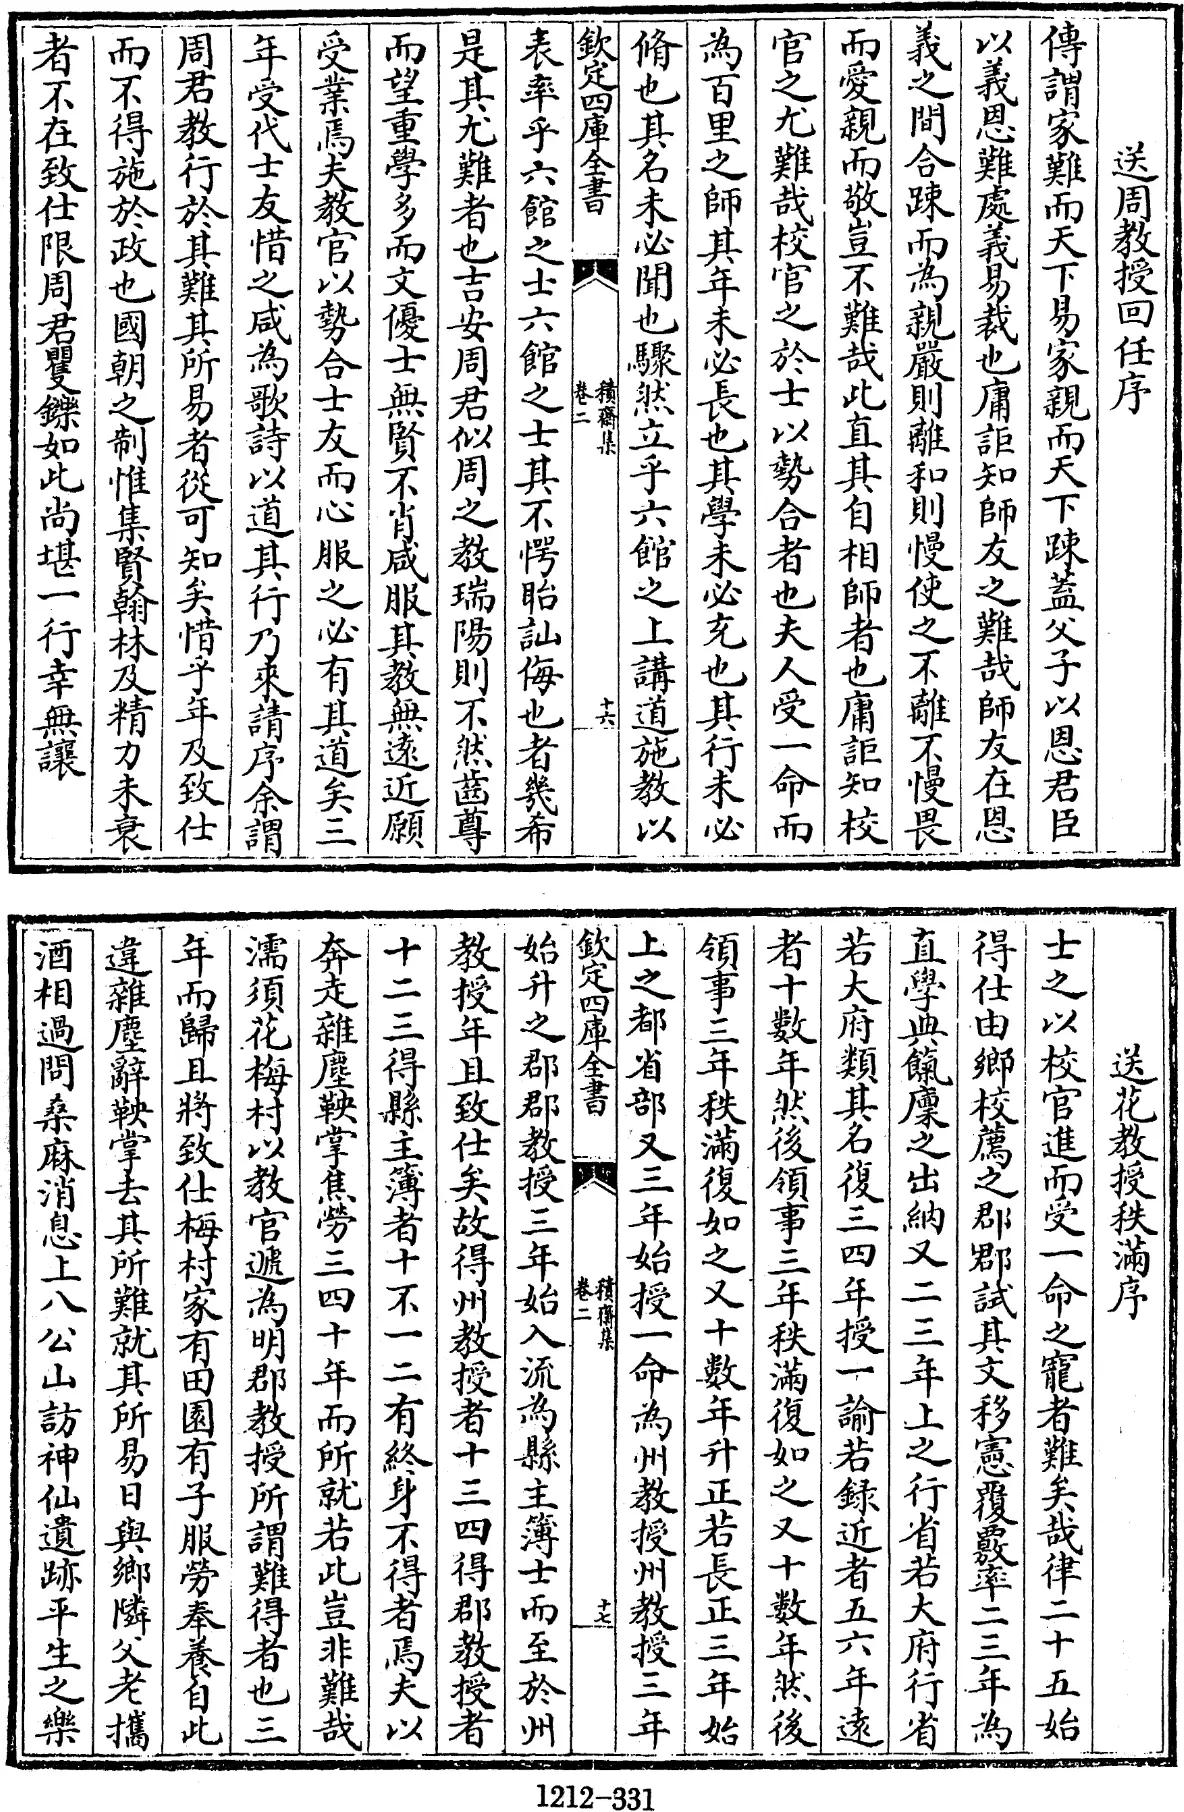 送周教授回任序
傳謂家難而天下易家親而天下踈蓋父子以恩君臣
以義恩難處義易裁也庸詎知師友之難哉師友在恩
義之間合踈而為親嚴則離和則慢使之不離不慢畏
而愛親而敬豈不難哉此直其自相師者也庸詎知校
官之尤難哉校官之於士以勢合者也夫人受一命而
為百里之師其年未必長也其學未必充也其行未必
脩也其名未必聞也驟然立乎六館之上講道施教以
欽定四庫全書
積齋集
卷二
十六
表率乎六館之士六館之士其不愕眙訕侮也者幾希
是其尤難者也吉安周君似周之教瑞陽則不然齒尊
而望重學多而文優士無賢不肖咸服其教無遠近願
受業焉夫教官以勢合士友而心服之必有其道矣三
年受代士友惜之咸為歌詩以道其行乃來請序余謂
周君教行於其難其所易者從可知矣惜乎年及致仕
而不得施於政也國朝之制惟集賢翰林及精力未衰
者不在致仕限周君矍鑠如此尚堪一行幸無讓
送花教授秩滿序
士之以校官進而受一命之寵者難矣哉律二十五始
得仕由鄉校薦之郡郡試其文移憲覆覈率二三年為
直學典餼廩之出納又二三年上之行省若大府行省
若大府類其名復三四年授一諭若録近者五六年遠
者十數年然後領事三年秩滿復如之又十數年然後
領事三年秩滿復如之又十數年升正若長正三年始
上之都省部又三年始授一命為州教授州教授三年
欽定四庫全書
積齋集
卷二
十七
始升之郡郡教授三年始入流為縣主簿士而至於州
教授年且致仕矣故得州教授者十三四得郡教授者
十二三得縣主簿者十不一二有終身不得者焉夫以
奔走雜塵鞅掌焦勞三四十年而所就若此豈非難哉
濡須花梅村以教官遞為明郡教授所謂難得者也三
年而歸且將致仕梅村家有田園有子服勞奉養自此
違雜塵辭鞅掌去其所難就其所易日與鄉隣父老攜
酒相過問桑麻消息上八公山訪神仙遺跡平生之樂
1212-331